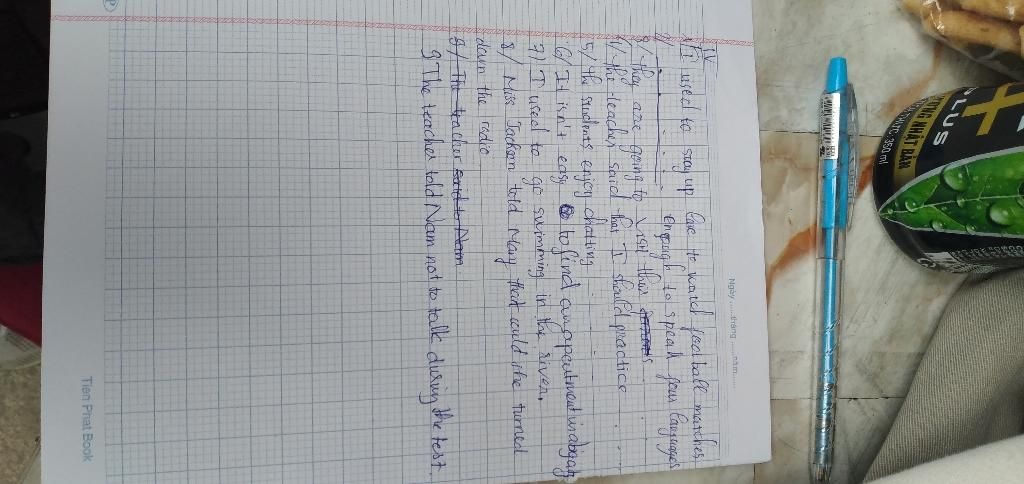 Ngày.......tháng.....năm........
IV
1/ I used to stay up late to watch football matches
2/ enough to speak four languages
3/ they are going to visit their
4/ the teacher said that I should practice
5/ the students enjoy chatting
6/ It isn't easy to find an apartment in
7/ I used to go swimming in the river.
8/ Miss Jackson told Mary that could she turned
down the radio
8/ The teacher said to Nam
9/ The teacher told Nam not to talk during the test.
Tien Phat Book
PLUS
350 ml